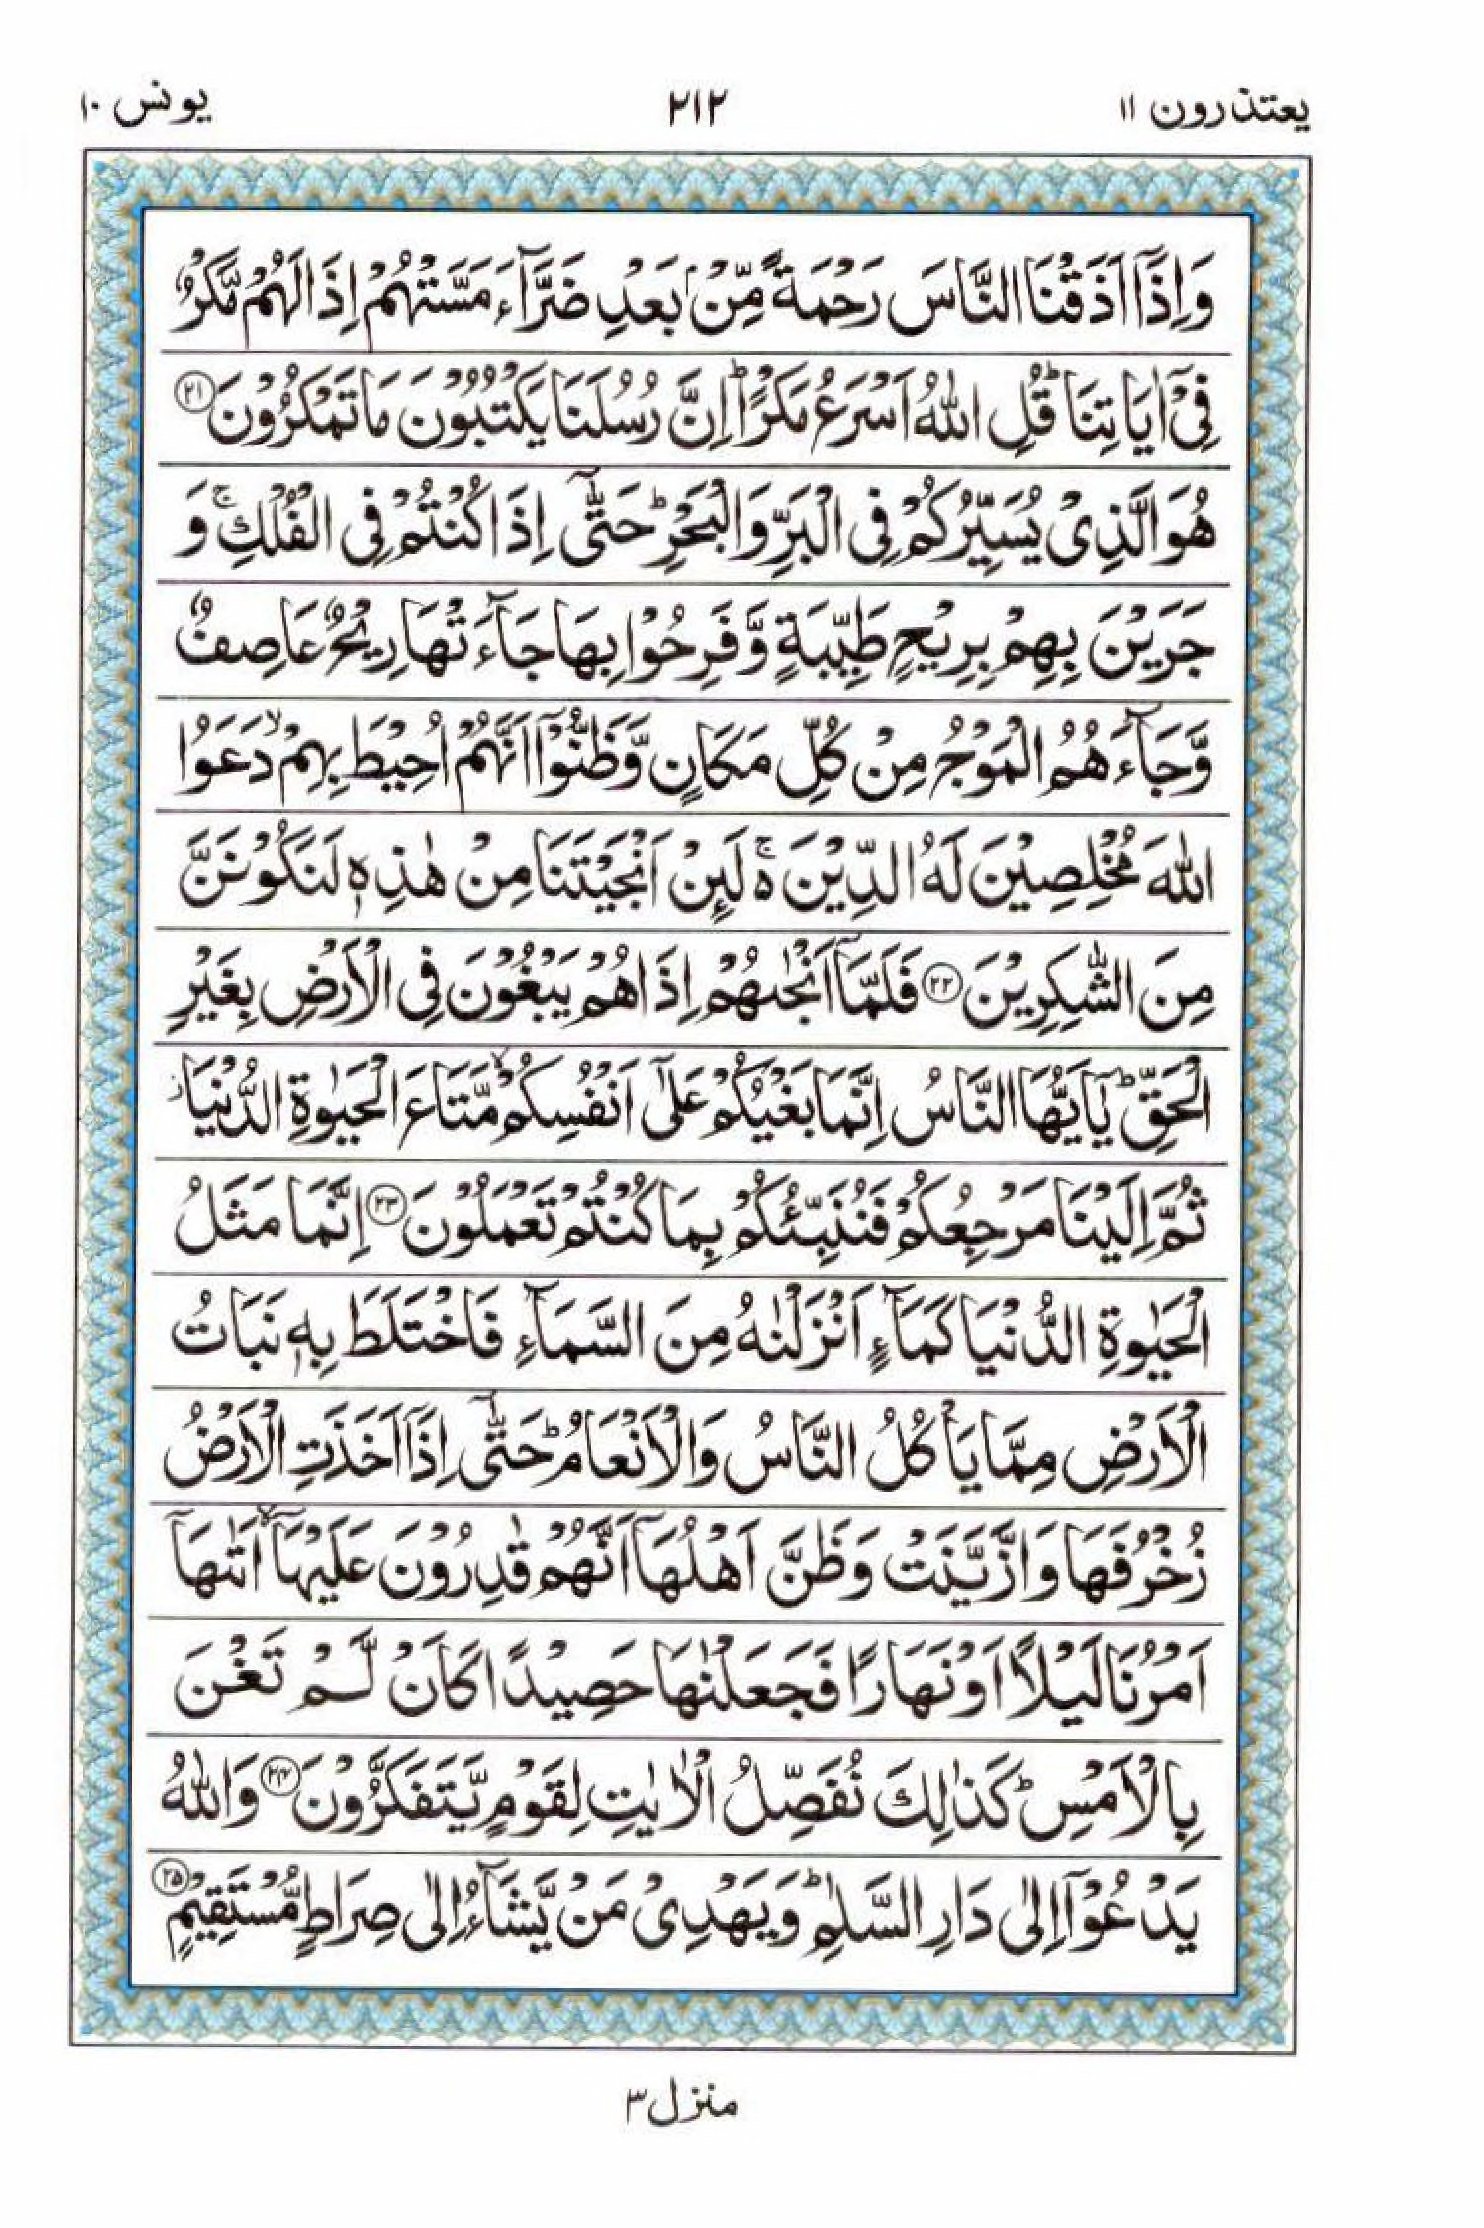 یعتذرون ۱۱
۲۱۲
یونس ۱۰
وَاِذَآ اَذَقْنَا النَّاسَ رَحْمَةً مِّنْۢ بَعْدِ ضَرَّآءَ مَسَّتْهُمْ اِذَا لَهُمْ مَّكْرٌ
فِیْۤ اٰیَاتِنَا ؕ قُلِ اللّٰهُ اَسْرَعُ مَكْرًا ؕ اِنَّ رُسُلَنَا یَكْتُبُوْنَ مَا تَمْكُرُوْنَ ۲۱
هُوَ الَّذِیْ یُسَیِّرُكُمْ فِی الْبَرِّ وَالْبَحْرِ ؕ حَتّٰۤی اِذَا كُنْتُمْ فِی الْفُلْكِ ۚ وَ
جَرَیْنَ بِهِمْ بِرِیْحٍ طَیِّبَةٍ وَّفَرِحُوْا بِهَا جَآءَتْهَا رِیْحٌ عَاصِفٌ
وَّجَآءَهُمُ الْمَوْجُ مِنْ كُلِّ مَكَانٍ وَّظَنُّوْۤا اَنَّهُمْ اُحِیْطَ بِهِمْ ۙ دَعَوُا
اللّٰهَ مُخْلِصِیْنَ لَهُ الدِّیْنَ ۬ۚ لَىِٕنْ اَنْجَیْتَنَا مِنْ هٰذِهٖ لَنَكُوْنَنَّ
مِنَ الشّٰكِرِیْنَ ۲۲ فَلَمَّاۤ اَنْجٰىهُمْ اِذَا هُمْ یَبْغُوْنَ فِی الْاَرْضِ بِغَیْرِ
الْحَقِّ ؕ یٰۤاَیُّهَا النَّاسُ اِنَّمَا بَغْیُكُمْ عَلٰۤی اَنْفُسِكُمْ ۙ مَّتَاعَ الْحَیٰوةِ الدُّنْیَا ز
ثُمَّ اِلَیْنَا مَرْجِعُكُمْ فَنُنَبِّئُكُمْ بِمَا كُنْتُمْ تَعْمَلُوْنَ ۲۳ اِنَّمَا مَثَلُ
الْحَیٰوةِ الدُّنْیَا كَمَآءٍ اَنْزَلْنٰهُ مِنَ السَّمَآءِ فَاخْتَلَطَ بِهٖ نَبَاتُ
الْاَرْضِ مِمَّا یَاْكُلُ النَّاسُ وَالْاَنْعَامُ ؕ حَتّٰۤی اِذَاۤ اَخَذَتِ الْاَرْضُ
زُخْرُفَهَا وَازَّیَّنَتْ وَظَنَّ اَهْلُهَاۤ اَنَّهُمْ قٰدِرُوْنَ عَلَیْهَاۤ ۙ اَتٰىهَاۤ
اَمْرُنَا لَیْلًا اَوْ نَهَارًا فَجَعَلْنٰهَا حَصِیْدًا كَاَنْ لَّمْ تَغْنَ
بِالْاَمْسِ ؕ كَذٰلِكَ نُفَصِّلُ الْاٰیٰتِ لِقَوْمٍ یَّتَفَكَّرُوْنَ ۲۴ وَاللّٰهُ
یَدْعُوْۤا اِلٰی دَارِ السَّلٰمِ ؕ وَیَهْدِیْ مَنْ یَّشَآءُ اِلٰی صِرَاطٍ مُّسْتَقِیْمٍ ۲۵
منزل ۳